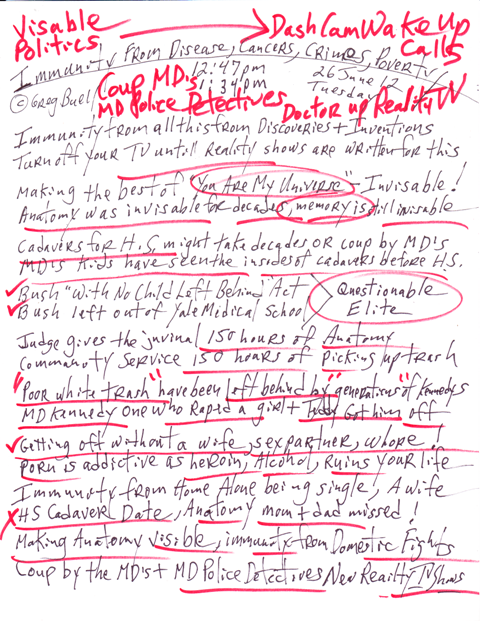 Visable → DashCamWakeUp
Politics Calls
Immunity From Disease, Cancers, Crimes, Poverty
Coup MD's 12:47pm 26 June 12
© Greg Buell 1:34pm Tuesday
MD Police Detectives Doctor up Reality TV
Immunity from all this from Discoveries + Inventions
Turn off your TV untill Reality shows are written for this
Making the best of "You Are My Universe" - Invisable!
Anatomy was invisable for decades, memory is still invisable
Cadavers for H.S. might take decades OR coup by MD's
MD's Kids have seen the insides of cadavers before H.S.
✓ Bush "With No Child Left Behind" Act Questionable
✓ Bush left out of Yale Medical School Elite
Judge gives the juvinal 150 hours of Anatomy
Communoty Service 150 hours of picking up trash
"Poor white trash" have been left behind by "generations" of Kennedys
MD Kennedy one who Raped a girl + Teddy Got him off
✓ Getting off without a wife, sex partner, whore!
Porn is addictive as heroin, Alcohol, Ruins your life
Immunity from Home Alone being single, A wife
X HS Cadaver Date, Anatomy mom + dad missed!
Making Anatomy Visible, immunity from Domestic Fights
Coup by the MD's + MD Police Detectives New Reality TV Shows